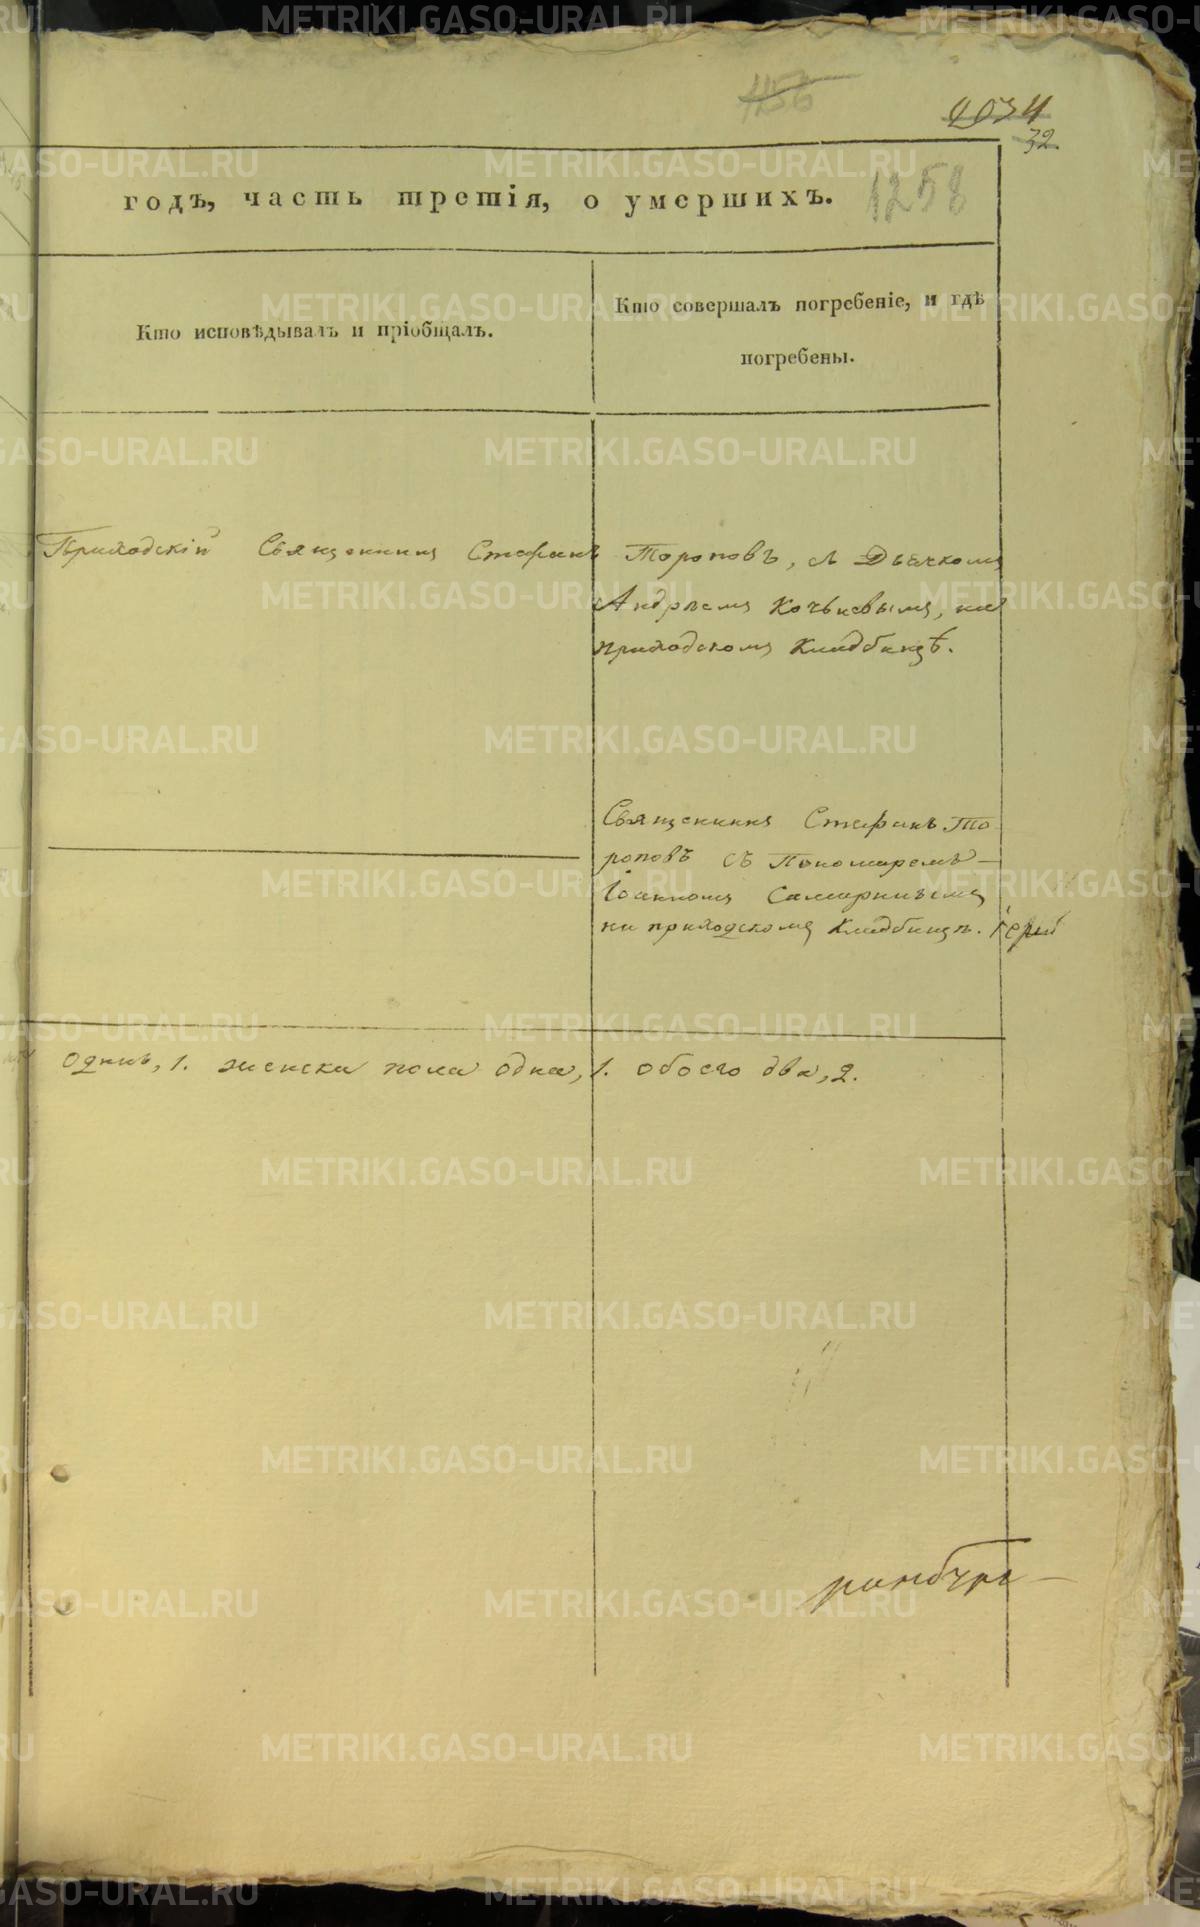 1034
32.
годъ, часть третія, о умершихъ. 1258
Кто исповѣдывалъ и пріобщалъ.
Кто совершалъ погребеніе, и гдѣ
погребены.
Приходскій Священникъ Стефанъ Тороповъ, съ Дьячкомъ
Андреемъ, на
приходскомъ Кладбищѣ.
Священникъ Стефанъ То
роповъ съ Пономаремъ
Іоанномъ
на приходскомъ Кладбищѣ. Іерей
одинъ, 1. женска пола одна, 1. обоего два, 2.
METRIKI.GASO-URAL.RU